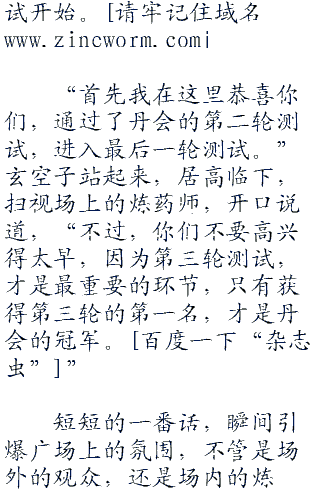 试开始。[请牢记住域名
www.zincworm.com]
“首先我在这里恭喜你
们，通过了丹会的第二轮测
试，进入最后一轮测试。”
玄空子站起来，居高临下，
扫视场上的炼药师，开口说
道，“不过，你们不要高兴
得太早，因为第三轮测试，
才是最重要的环节，只有获
得第三轮的第一名，才是丹
会的冠军。[百度一下“杂志
虫”]”
短短的一番话，瞬间引
爆广场上的氛围，不管是场
外的观众，还是场内的炼